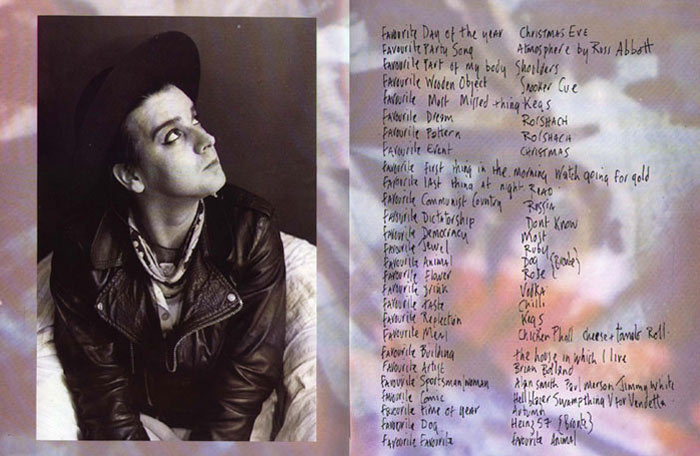 Favourite Day of the year Christmas Eve
Favourite Party Song Atmosphere by Russ Abbott
Favourite Part of my body Shoulders
Favourite Wooden Object Snooker Cue
Favourite Most Missed thing Kegs
Favourite Dream Rorshach
Favourite Pattern Rorshach
Favourite Event Christmas
Favourite first thing in the morning Watch going for gold
Favourite last thing at night Read
Favourite Communist Country Russia
Favourite Dictatorship Dont Know
Favourite Democracy Most
Favourite Jewel Ruby
Favourite Animal Dog {Bronte}
Favourite Flower Rose
Favourite Drink Vodka
Favourite Taste Chilli
Favourite Rejection Kegs
Favourite Meal Chicken Phall cheese + tomato Roll
Favourite Building the house in which I live
Favourite Artist Brian Bolland
Favourite Sportsman/woman Alan Smith Paul Merson Jimmy White
Favourite Comic Hellblazer Swampthing V for Vendetta
Favourite time of year Autumn
Favourite Dog Heinz 57 {Bronte}
Favourite Favourite favourite Animal